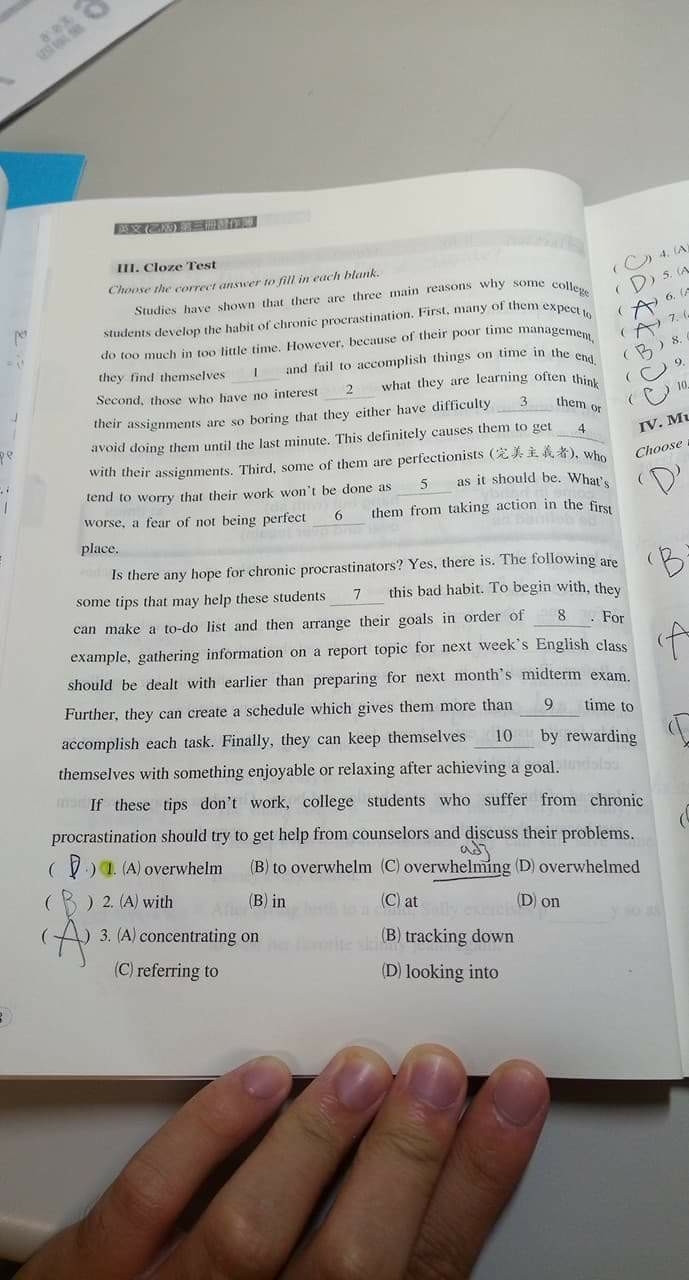 英文(乙版)第三冊習作簿
III. Cloze Test
Choose the correct answer to fill in each blank.
Studies have shown that there are three main reasons why some college
students develop the habit of chronic procrastination. First, many of them expect to
do too much in too little time. However, because of their poor time management,
they find themselves 1 and fail to accomplish things on time in the end.
Second, those who have no interest 2 what they are learning often think
their assignments are so boring that they either have difficulty 3 them or
avoid doing them until the last minute. This definitely causes them to get 4
with their assignments. Third, some of them are perfectionists (完美主義者), who
tend to worry that their work won't be done as 5 as it should be. What's
worse, a fear of not being perfect 6 them from taking action in the first
place.
Is there any hope for chronic procrastinators? Yes, there is. The following are
some tips that may help these students 7 this bad habit. To begin with, they
can make a to-do list and then arrange their goals in order of 8 . For
example, gathering information on a report topic for next week's English class
should be dealt with earlier than preparing for next month's midterm exam.
Further, they can create a schedule which gives them more than 9 time to
accomplish each task. Finally, they can keep themselves 10 by rewarding
themselves with something enjoyable or relaxing after achieving a goal.
If these tips don't work, college students who suffer from chronic
procrastination should try to get help from counselors and discuss their problems.
adj
( D ) 1. (A) overwhelm (B) to overwhelm (C) overwhelming (D) overwhelmed
( B ) 2. (A) with (B) in (C) at (D) on
( A ) 3. (A) concentrating on (B) tracking down
(C) referring to (D) looking into
( C ) 4. (A)
( D ) 5. (A
( A ) 6. (A
( A ) 7. (
( B ) 8. (
( C ) 9.
( C ) 10.
IV. Mu
Choose
( D )
( B
( A
( D